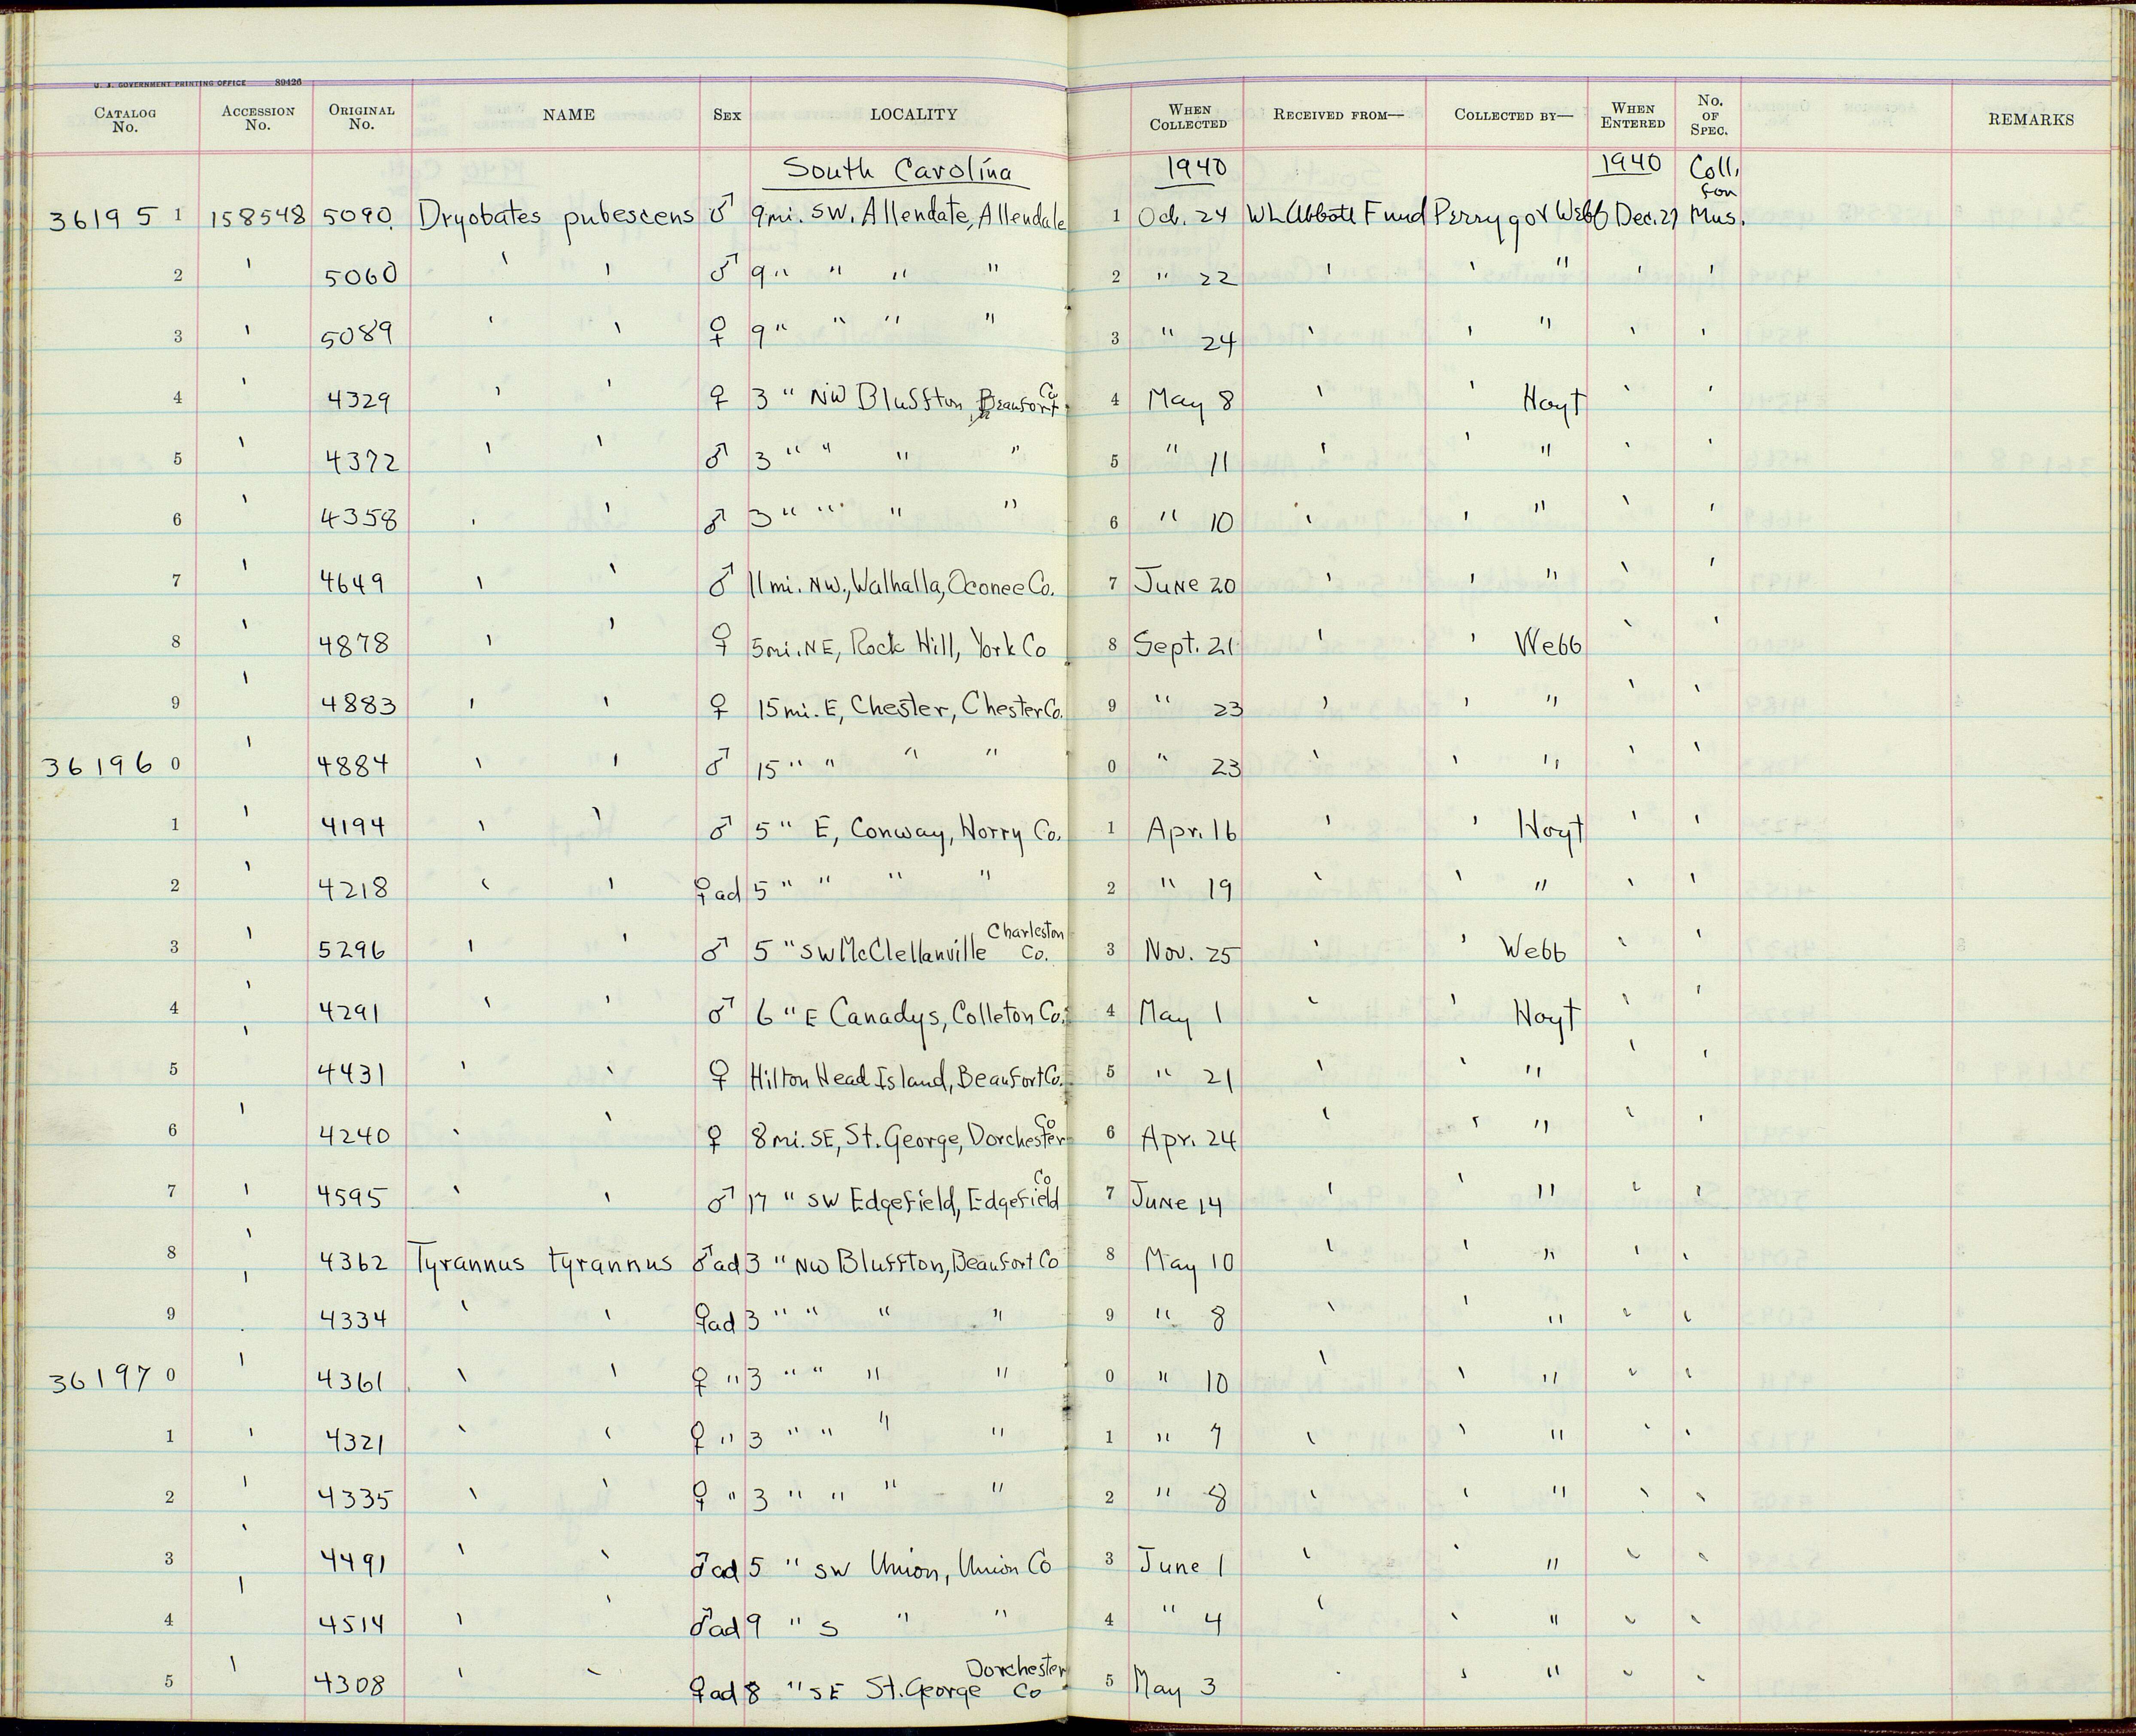 U. S. GOVERNMENT PRINTING OFFICE 89426
CATALOG No. ACCESSION No. ORIGINAL No. NAME SEX LOCALITY WHEN COLLECTED RECEIVED FROM— COLLECTED BY— WHEN ENTERED No. OF SPEC. REMARKS
South Carolina 1940 1940 Coll. for
36195 1 158548 5090. Dryobates pubescens ♂ 9mi. SW. Allendate, Allendale 1 Oct. 24 WL Abbott Fund Perrygo & Webb Dec. 27 Mus.
2 ' 5060 ' ' ♂ 9 " " " " 2 " 22 ' ' " ' '
3 ' 5089 ' ' ♀ 9 " " " " 3 " 24 ' ' " ' '
4 ' 4329 ' ' ♀ 3 " NW Bluffton, Beaufort Co. 4 May 8 ' ' Hoyt ' '
5 ' 4372 ' ' ♂ 3 " " " " 5 " 11 ' ' " ' '
6 ' 4358 ' ' ♂ 3 " " " " 6 " 10 ' ' " ' '
7 ' 4649 ' ' ♂ 11 mi. NW., Walhalla, Oconee Co. 7 June 20 ' ' " ' '
8 ' 4878 ' ' ♀ 5mi. NE, Rock Hill, York Co 8 Sept. 21 ' ' Webb ' '
9 ' 4883 ' ' ♀ 15 mi. E, Chester, Chester Co. 9 " 23 ' ' " ' '
36196 0 ' 4884 ' ' ♂ 15 " " " " 0 " 23 ' ' " ' '
1 ' 4194 ' ' ♂ 5 " E, Conway, Horry Co. 1 Apr. 16 ' ' Hoyt ' '
2 ' 4218 ' ' ♀ad 5 " " " " 2 " 19 ' ' " ' '
3 ' 5296 ' ' ♂ 5 " SW McClellanville Charleston Co. 3 Nov. 25 ' ' Webb ' '
4 ' 4291 ' ' ♂ 6 " E Canadys, Colleton Co. 4 May 1 ' ' Hoyt ' '
5 ' 4431 ' ' ♀ Hilton Head Island, Beaufort Co. 5 " 21 ' ' " ' '
6 ' 4240 ' ' ♀ 8 mi. SE, St. George, Dorchester Co 6 Apr. 24 ' ' " ' '
7 ' 4595 ' ' ♂ 17 " SW Edgefield, Edgefield Co 7 June 14 ' ' " ' '
8 ' 4362 Tyrannus tyrannus ♂ad 3 " NW Bluffton, Beaufort Co 8 May 10 ' ' " ' '
9 ' 4334 ' ' ♀ad 3 " " " " 9 " 8 ' ' " ' '
36197 0 ' 4361 ' ' ♀ " 3 " " " " 0 " 10 ' ' " ' '
1 ' 4321 ' ' ♀ " 3 " " " " 1 " 7 ' ' " ' '
2 ' 4335 ' ' ♀ " 3 " " " " 2 " 8 ' ' " ' '
3 ' 4491 ' ' ♂ad 5 " SW Union, Union Co 3 June 1 ' ' " ' '
4 ' 4514 ' ' ♂ad 9 " S " " 4 " 4 ' ' " ' '
5 ' 4308 ' ' ♀ad 8 " SE St. George Dorchester Co 5 May 3 ' ' " ' '